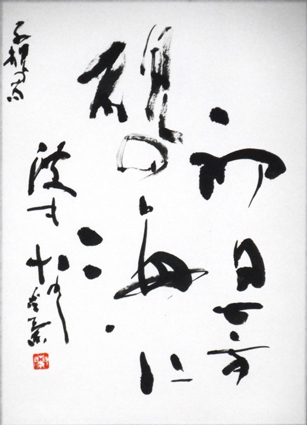 初日さす
硯の海に
波もなし
子規句